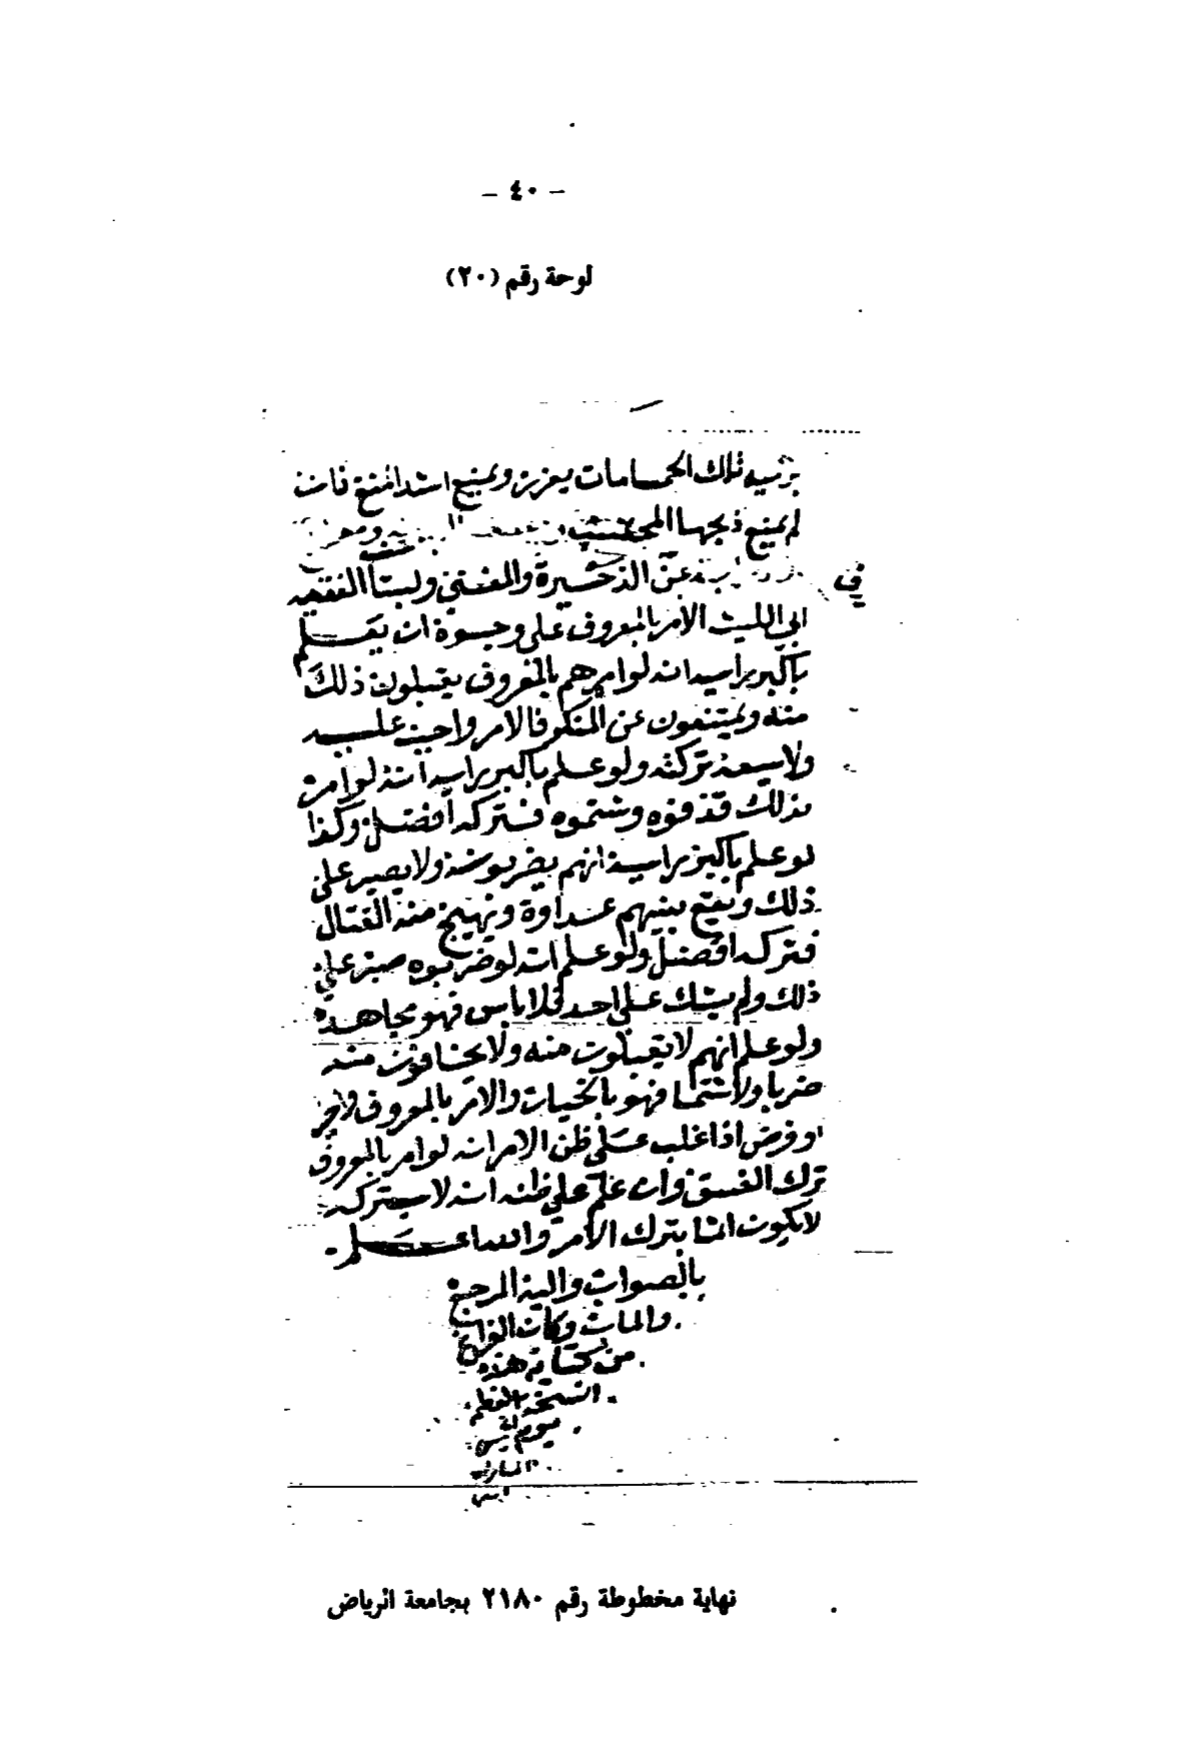 - ٤٠ -
لوحة رقم (٢٠)
تلك الحمامات يعزر ويمنع اشد المنع فان
لم يمنع ذبحها المحتسب
في
عن الذخيرة والمغني وبستان الفقيه
ابي الليث الامر بالمعروف على وجوه ان يعلم
باكبر رايه انه لو امرهم بالمعروف يقبلون ذلك
منه ويمتنعون عن المنكر فالامر واجب عليه
ولا يسعه تركه ولو علم باكبر رايه انه لو امر
بذلك قذفوه وشتموه فتركه افضل وكذا
لو علم باكبر رايه انهم يضربونه ولا يصبر على
ذلك ويقع بينهم عداوة ويهيج منه القتال
فتركه افضل ولو علم انه لو ضربوه صبر على
ذلك ولم يشك على احد فلا باس فهو مجاهد
ولو علم انهم لا يقبلون منه ولا يخافون منه
ضربا ولا شتما فهو بالخيار والامر بالمعروف
فرض اذا غلب على ظن الامر انه لو امر بالمعروف
ترك الفسق وان علم على ظنه انه لا يتركه
لا يكون اثما بترك الامر والله اعلم
بالصواب واليه المرجع
والماب وكان الفراغ
من كتابة هذه
النسخة
يوم
المبارك
نهاية مخطوطة رقم ٢١٨٠ بجامعة الرياض